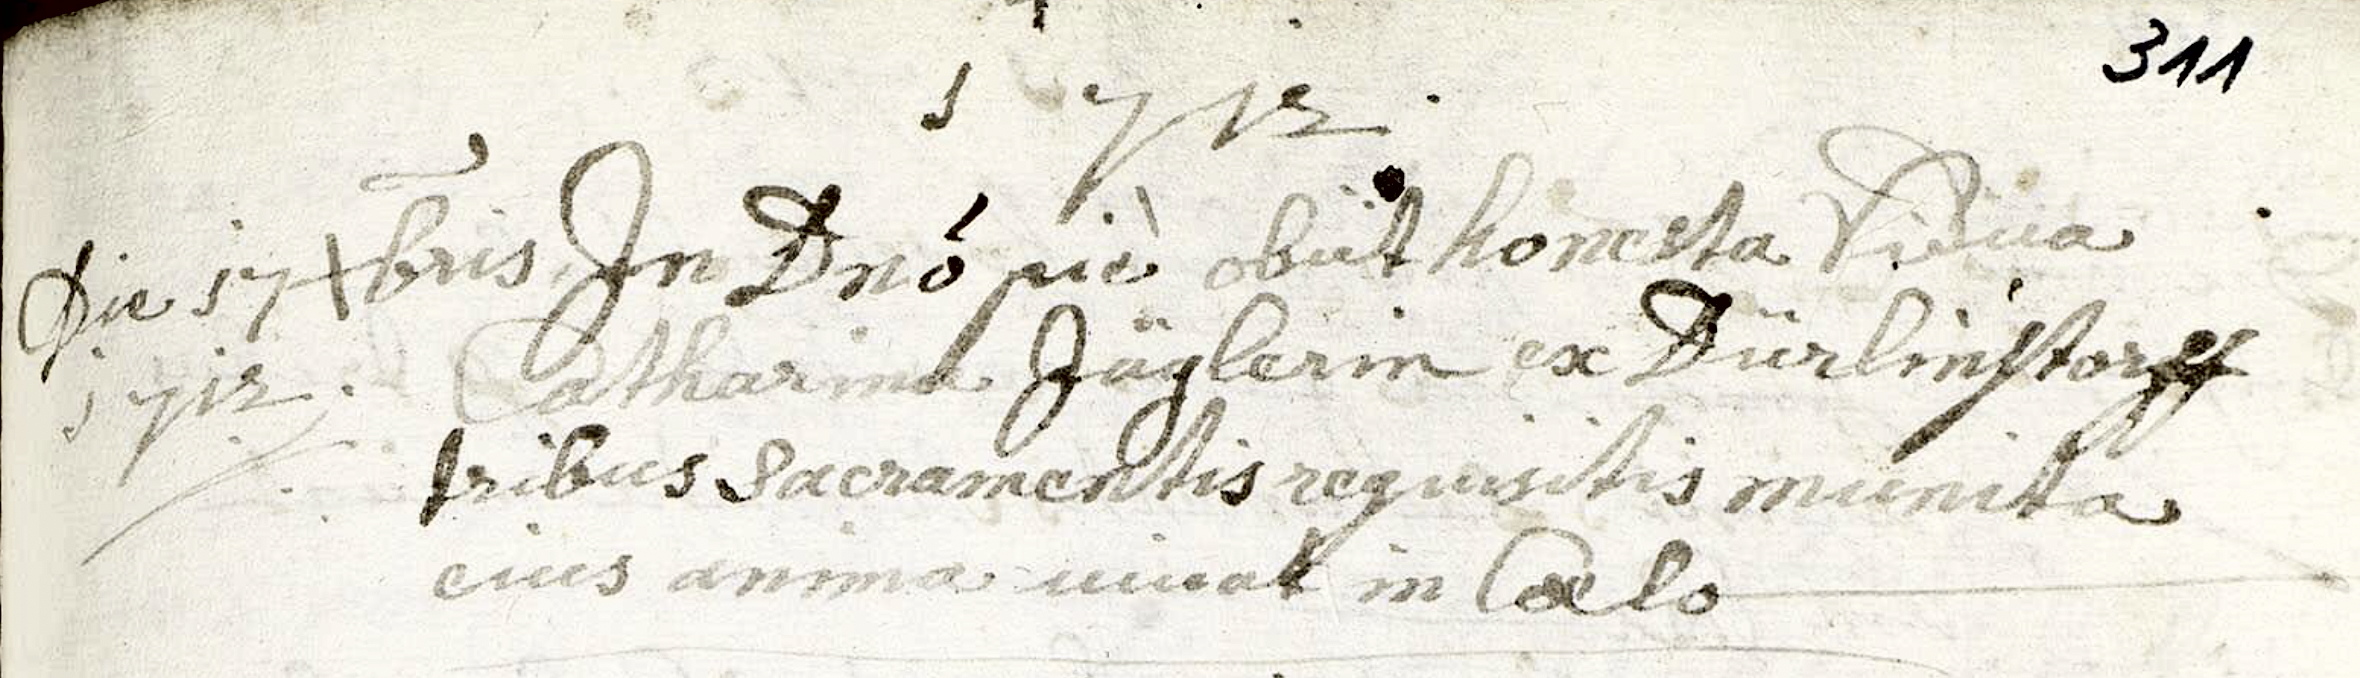 311
1712.
Die 17 Xbris. In Dnó piè obiit honesta Vidua
1712. Catharina Jäglerin ex Dürlinstorff
tribus Sacramentis requisitis munita
eius anima uiuat in Coelo